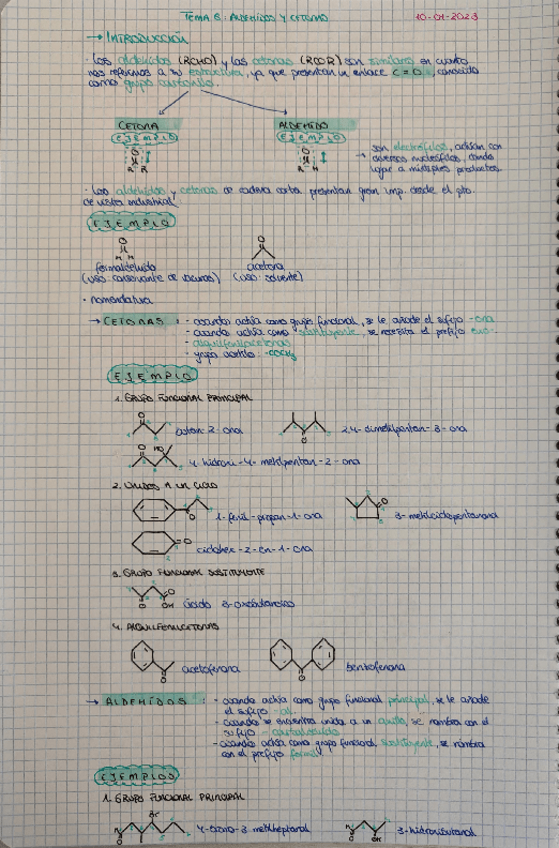 TEMA 6: ALDEHIDOS Y CETONAS 10-01-2023
→ INTRODUCCIÓN
· Los aldehídos (RCHO) y las cetonas (RCOR) son similares en cuanto
nos referimos a su estructura, ya que presentan un enlace C=O, conocido
como grupo carbonilo.
CETONA ALDEHÍDO
EJEMPLO EJEMPLO
O O
R R R H
→ son electrófilos, actúan con
diversos nucleófilos, dando
lugar a múltiples productos.
· Los aldehídos y cetonas de cadena corta presentan gran imp. desde el pto.
de vista industrial
EJEMPLO
O O
H H
formaldehído acetona
(uso: conservante de vacunas) (uso: solvente)
· nomenclatura
→ CETONAS : - cuando actúa como grupo funcional, se le añade el sufijo -ona
- cuando actúa como sustituyente, se necesita el prefijo oxo-
- alquilfenilcetonas
- grupo acetilo: -COCH3
EJEMPLO
1. GRUPO FUNCIONAL PRINCIPAL
butan-2-ona 2,4-dimetilpentan-3-ona
HO
4-hidroxi-4-metilpentan-2-ona
2. UNIDOS A UN CICLO
1-fenil-propan-1-ona 3-metilciclopentanona
ciclohex-2-en-1-ona
3. GRUPO FUNCIONAL SUSTITUYENTE
OH ácido 3-oxobutanoico
4. ALQUILFENILCETONAS
acetofenona benzofenona
→ ALDEHÍDOS : - cuando actúa como grupo funcional principal, se le añade
el sufijo -al.
- cuando se encuentra unido a un anillo, se nombra con el
sufijo -carbaldehído
- cuando actúa como grupo funcional sustituyente, se nombra
con el prefijo formil-
EJEMPLOS
1. GRUPO FUNCIONAL PRINCIPAL
Br
4-bromo-3-metilheptanal 3-hidroxibutanal
OH